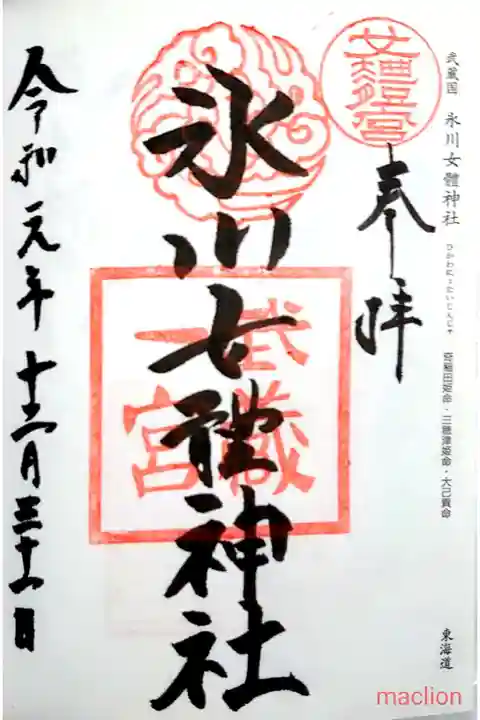 武蔵国 氷川女體神社
ひかわにょたいじんじゃ
奇稲田姫命・三穂津姫命・大己貴命
東海道
奉拝
氷川女體神社
武蔵
一宮
令和元年十二月三十一日
maclion